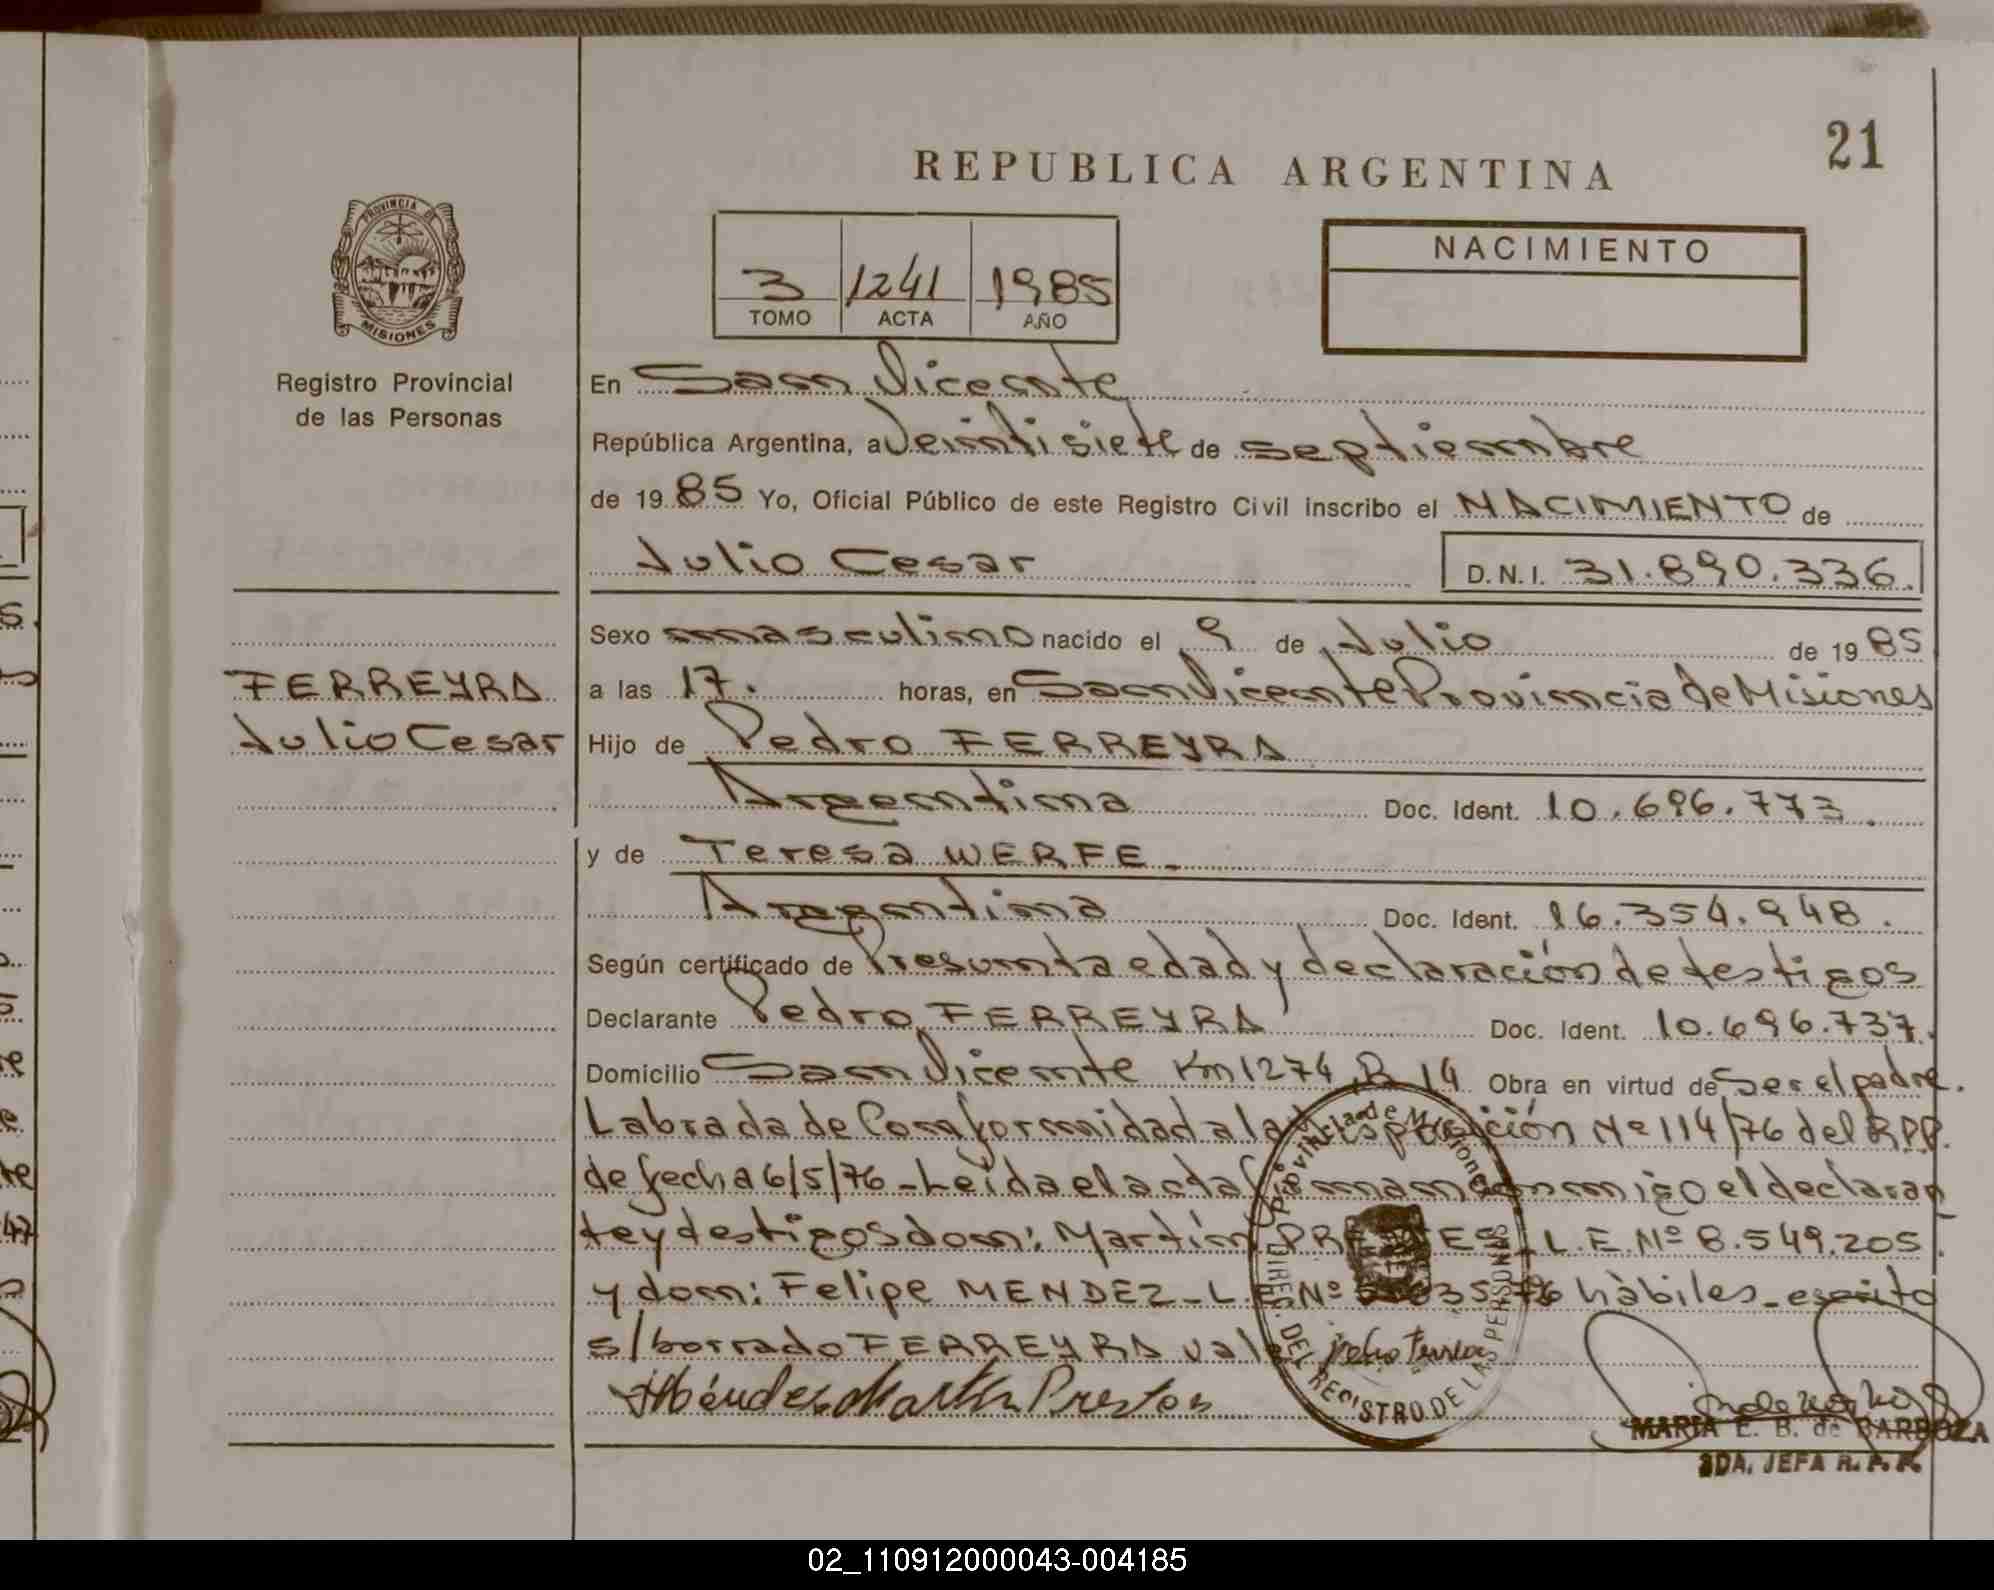 21
REPUBLICA ARGENTINA
PROVINCIA DE
MISIONES
Registro Provincial
de las Personas
3 1241 1985
TOMO ACTA AÑO
NACIMIENTO
En San Vicente
República Argentina, a Veintisiete de septiembre
de 1985 Yo, Oficial Público de este Registro Civil inscribo el NACIMIENTO de
Julio Cesar D.N.I. 31.890.336.
Sexo masculino nacido el 9 de Julio de 1985
FERREYRA
Julio Cesar
a las 17. horas, en San Vicente Provincia de Misiones
Hijo de Pedro FERREYRA
Argentina Doc. Ident. 10.696.773.
y de Teresa WERFE.
Argentina Doc. Ident. 16.354.948.
Según certificado de Presunta edad y declaración de testigos
Declarante Pedro FERREYRA Doc. Ident. 10.696.737.
Domicilio San Vicente Km 1274 R 14 Obra en virtud de Ser el padre.
Labrada de Conformidad a la Disposición Nº 114/76 del R.P.P.
de fecha 6/5/76 - Leída el acta firman conmigo el declaran
te y testigos don: Martín L.E. Nº 8.549.205
y don: Felipe MENDEZ - L.E. Nº hàbiles - escrito
s/borrado FERREYRA vale
Méndez Martin Prestes
Provincia de Misiones
DIREC. DEL REGISTRO DE LAS PERSONAS
MARIA E. B. de BARBOZA
2DA. JEFA R. P. P.
02_110912000043-004185